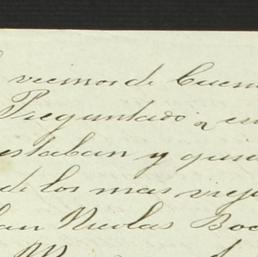 vecinos de Cuen
Preguntado
estaban y quie
de los mas viejo
Nicolas Boc